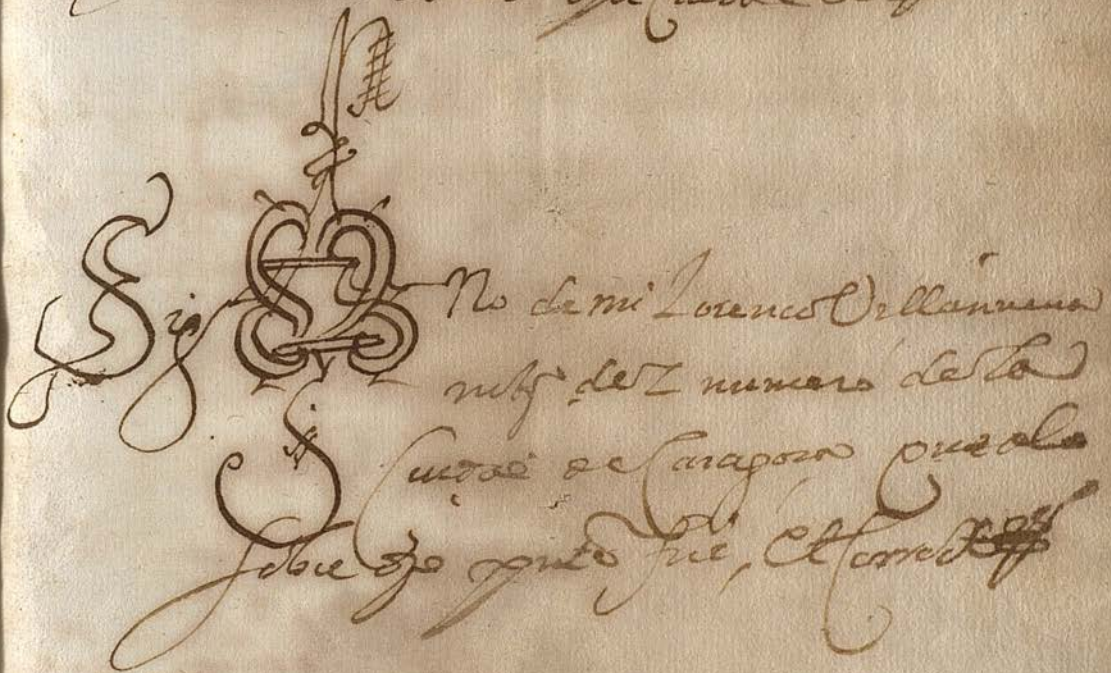 Sig No de mi Lorenço Villanueva
del numero de la
Ciudad de Caragoça que a lo
sobre dho pnte fue, et Corregi